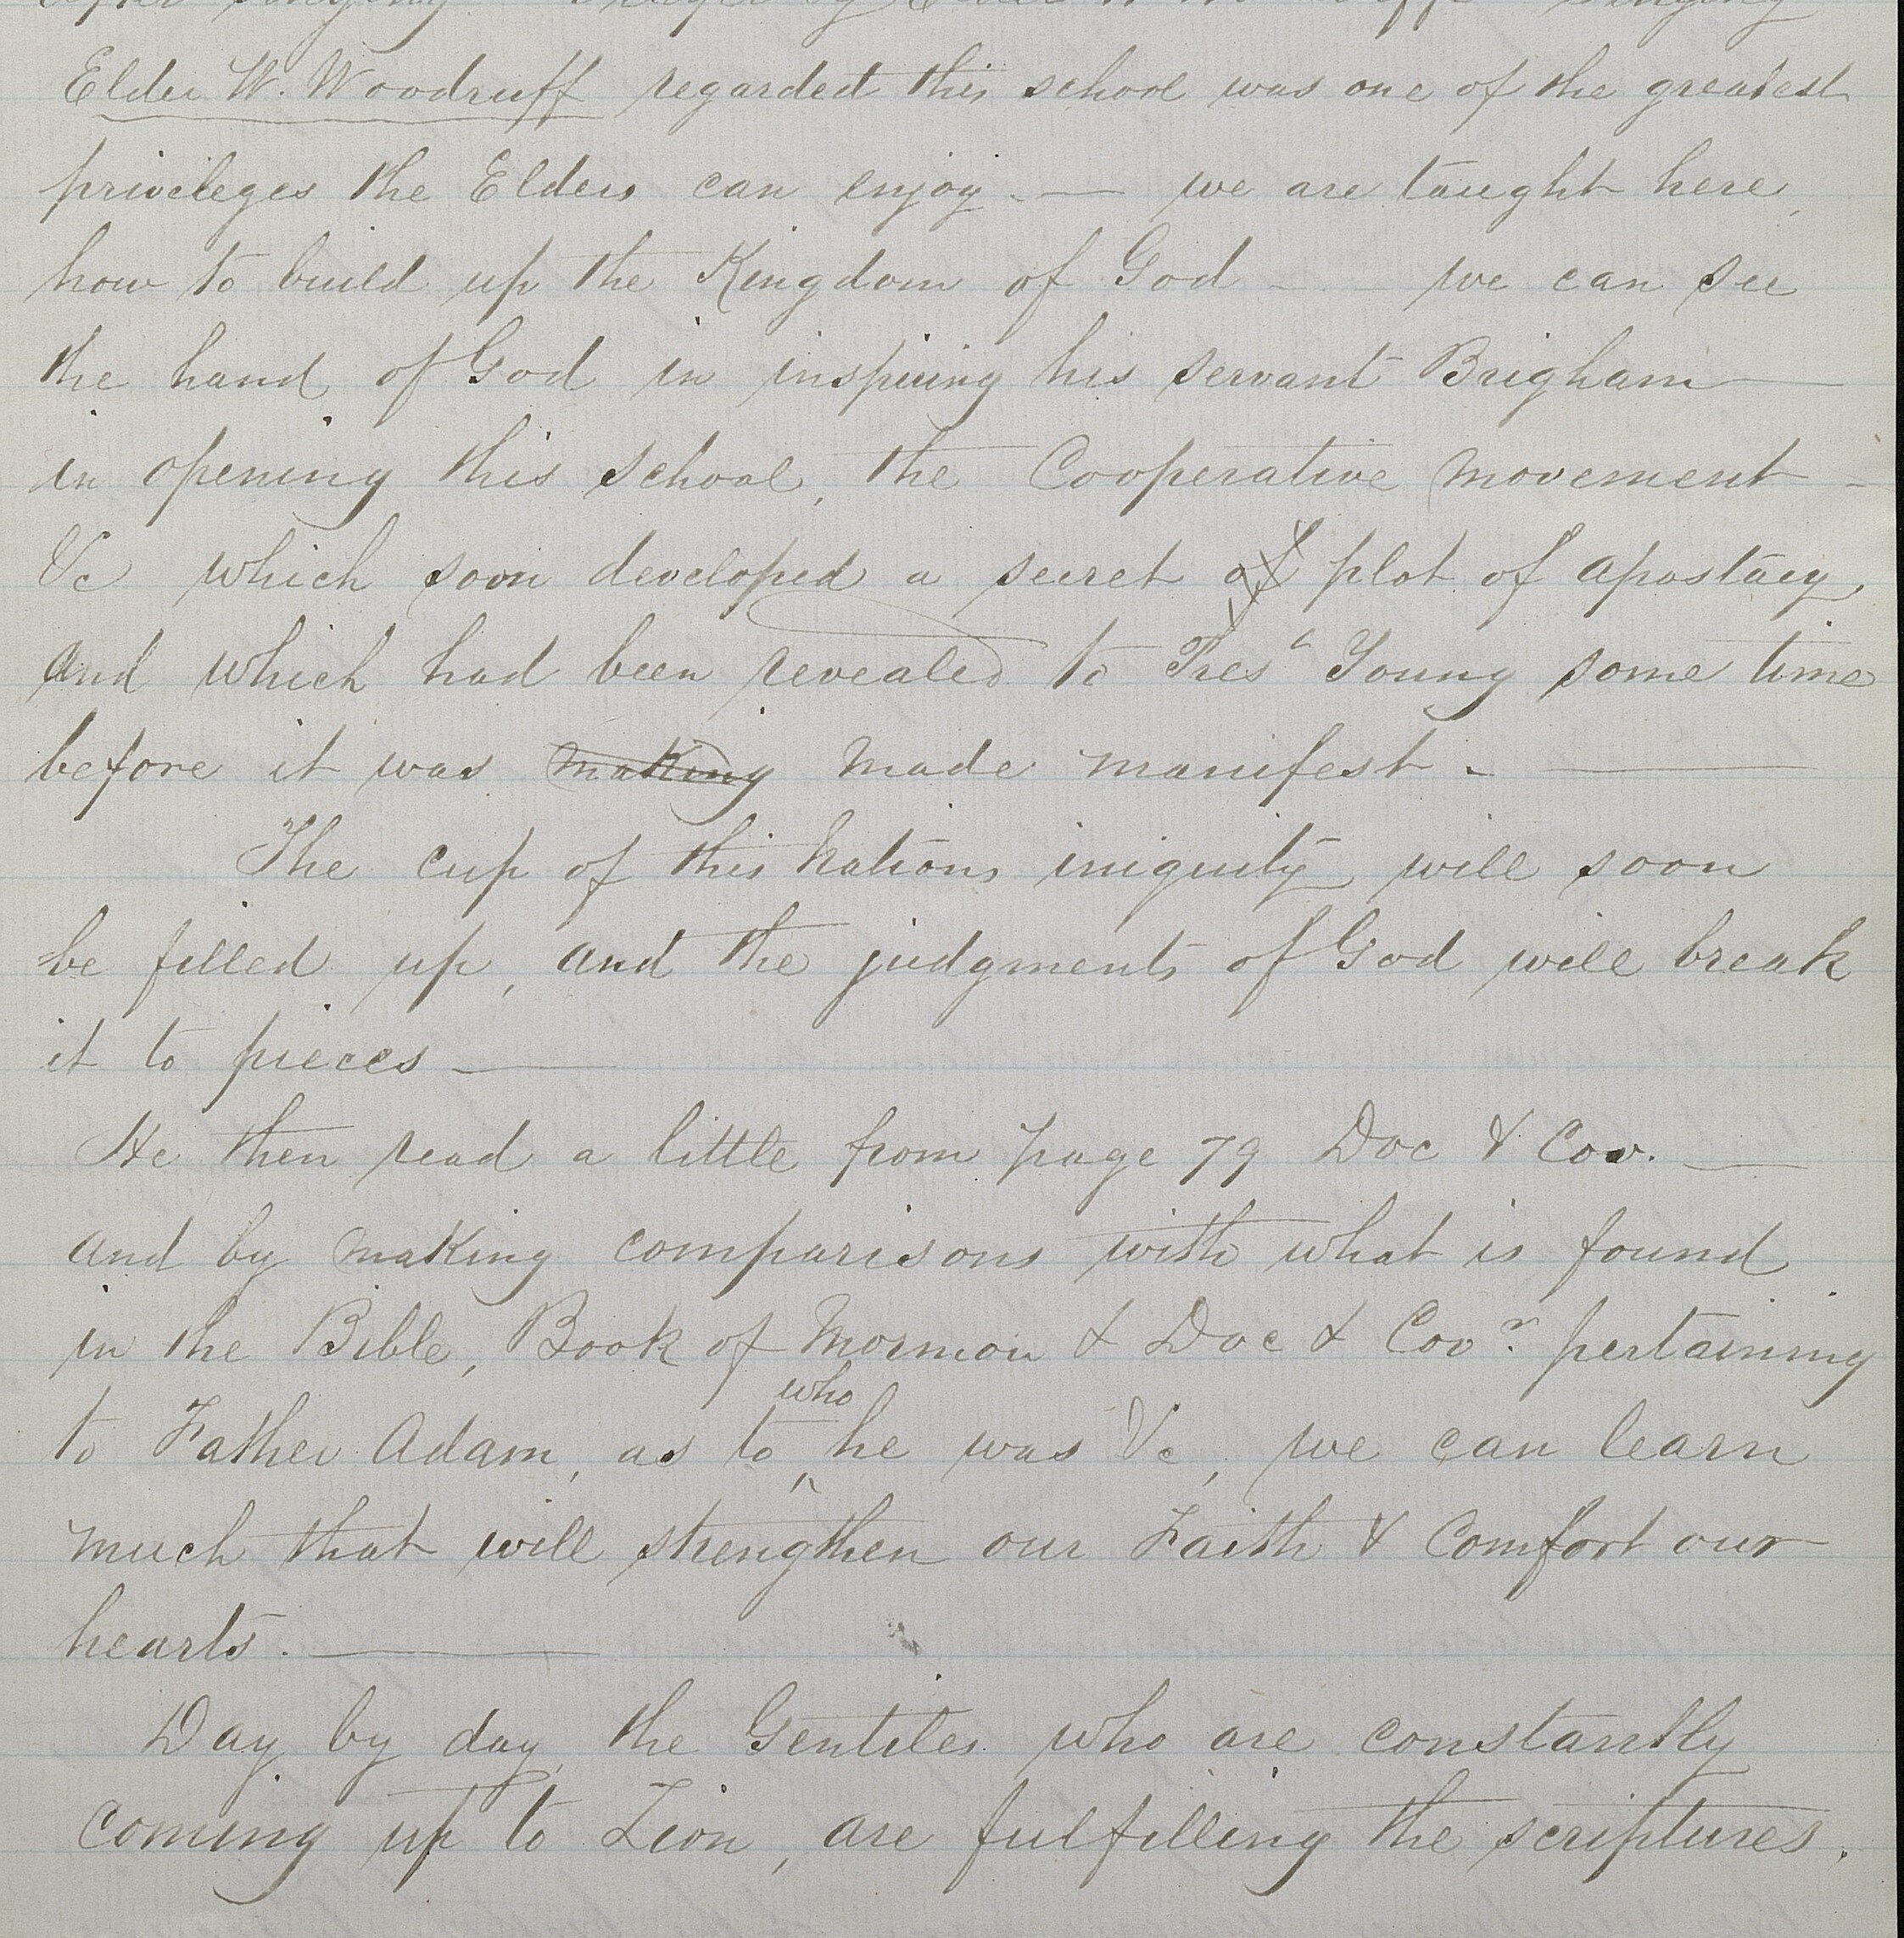 Elder W. Woodruff regarded this school was one of the greatest
privileges the Elders can enjoy — we are taught here,
how to build up the Kingdom of God — we can see
the hand of God in inspiring his servant Brigham —
in opening this school, the Cooperative movement -
&c which soon developed a secret of plot of apostacy,
and which had been revealed to Prest Young some time
before it was making made manifest. —
The cup of this Nations iniquity will soon
be filled up, and the judgments of God will break
it to pieces —
He then read a little from page 79 Doc & Cov. —
and by making comparisons with what is found
in the Bible, Book of Mormon & Doc & Covn. pertaining
to Father Adam, as to who he was &c, we can learn
much that will strengthen our Faith & Comfort our
hearts. —
Day by day, the Gentiles who are constantly
coming up to Zion, are fulfilling the scriptures.